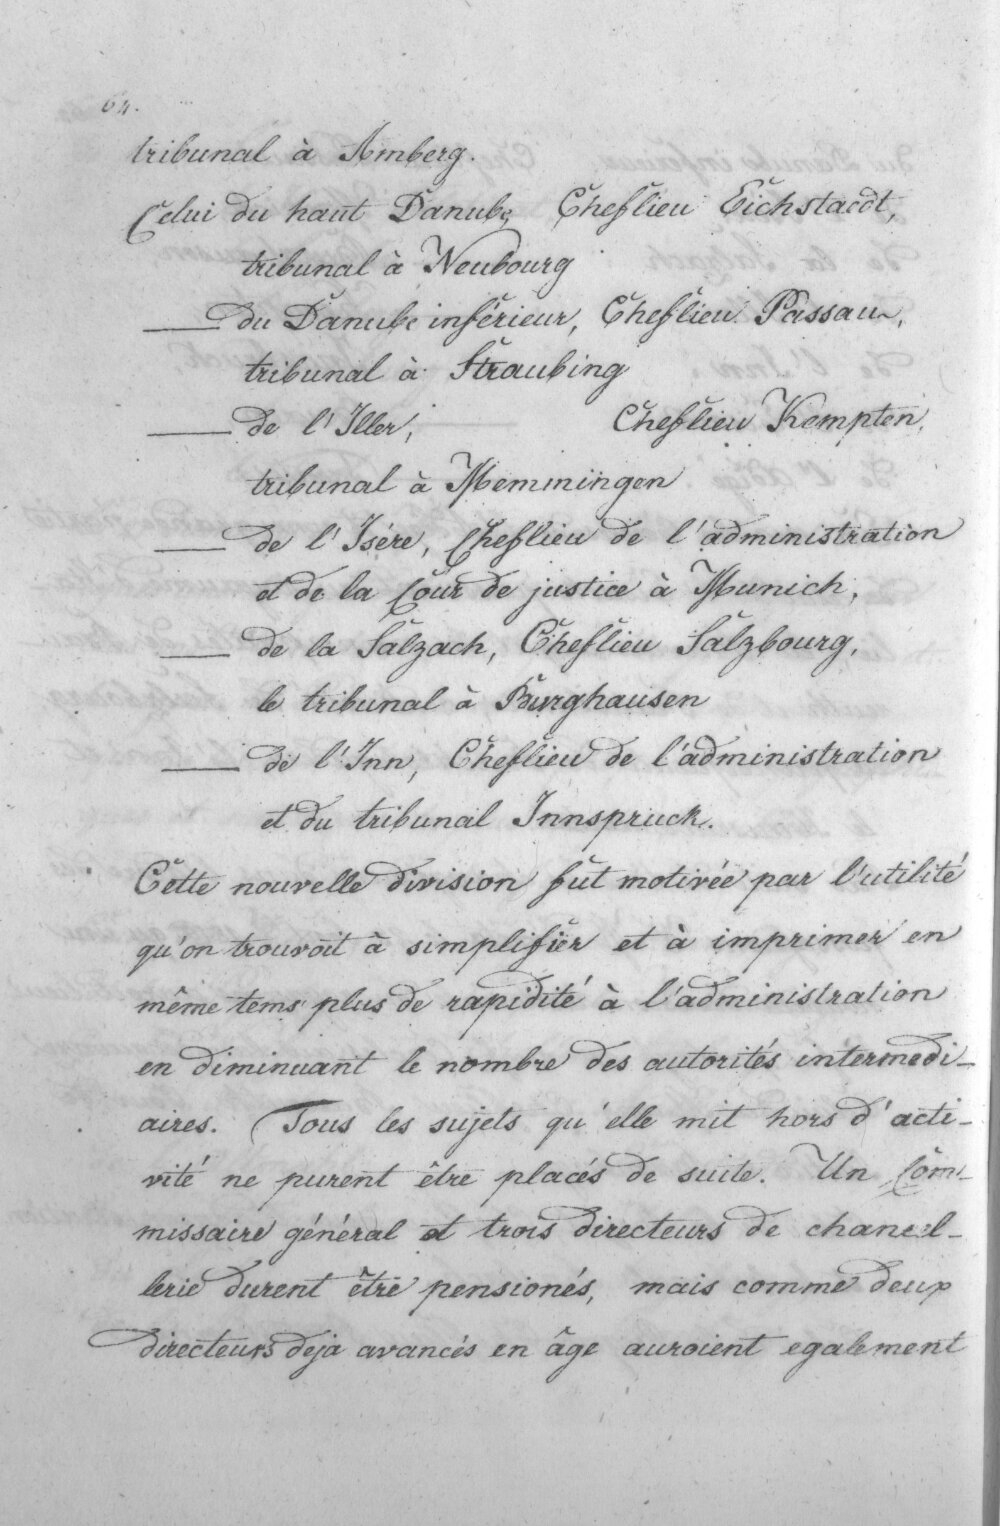 64.
tribunal à Amberg.
Celui du haut Danube, Cheflieu Eichstaedt,
tribunal à Neubourg
—— du Danube inférieur, Cheflieu Passau,
tribunal à Straubing
—— de l'Iller, Cheflieu Kempten,
tribunal à Memmingen
—— de l'Isére, Cheflieu de l'administration
et de la Cour de justice à Munich,
—— de la Salzach, Cheflieu Salzbourg,
le tribunal à Burghausen
—— de l'Inn, Cheflieu de l'administration
et du tribunal Innspruck.
Cette nouvelle division fut motivée par l'utilité
qu'on trouvoit à simplifier et à imprimer en
même tems plus de rapidité à l'administration
en diminuant le nombre des autorités intermedi-
aires. Tous les sujets qu'elle mit hors d'acti-
vité ne purent être placés de suite. Un Com-
missaire général et trois directeurs de chancel-
lerie durent être pensionés, mais comme deux
directeurs deja avancés en âge auroient egalement